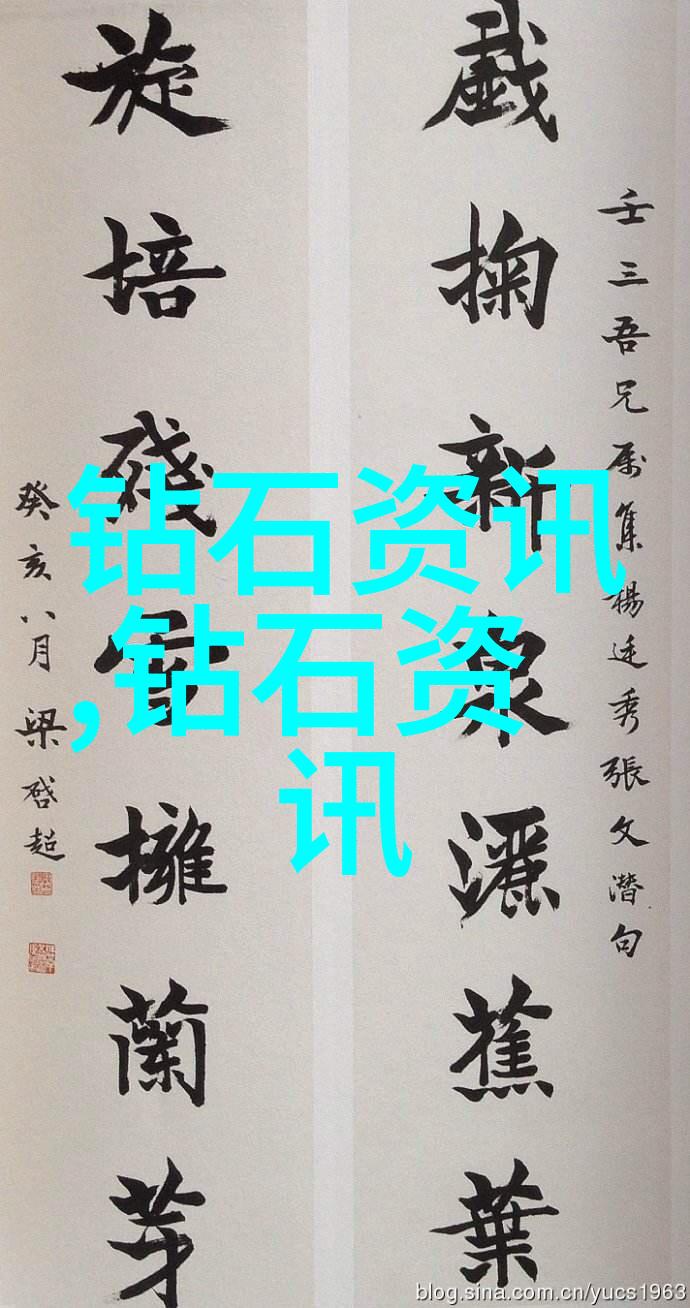 戲掬新泉灑蕉葉
壬三吾兄属集楊廷秀張文潜句
旋培殘雪擁蘭芽
癸亥八月梁啓超
钻石资讯
,钻石资
讯
blog.sina.com.cn/yucs1963